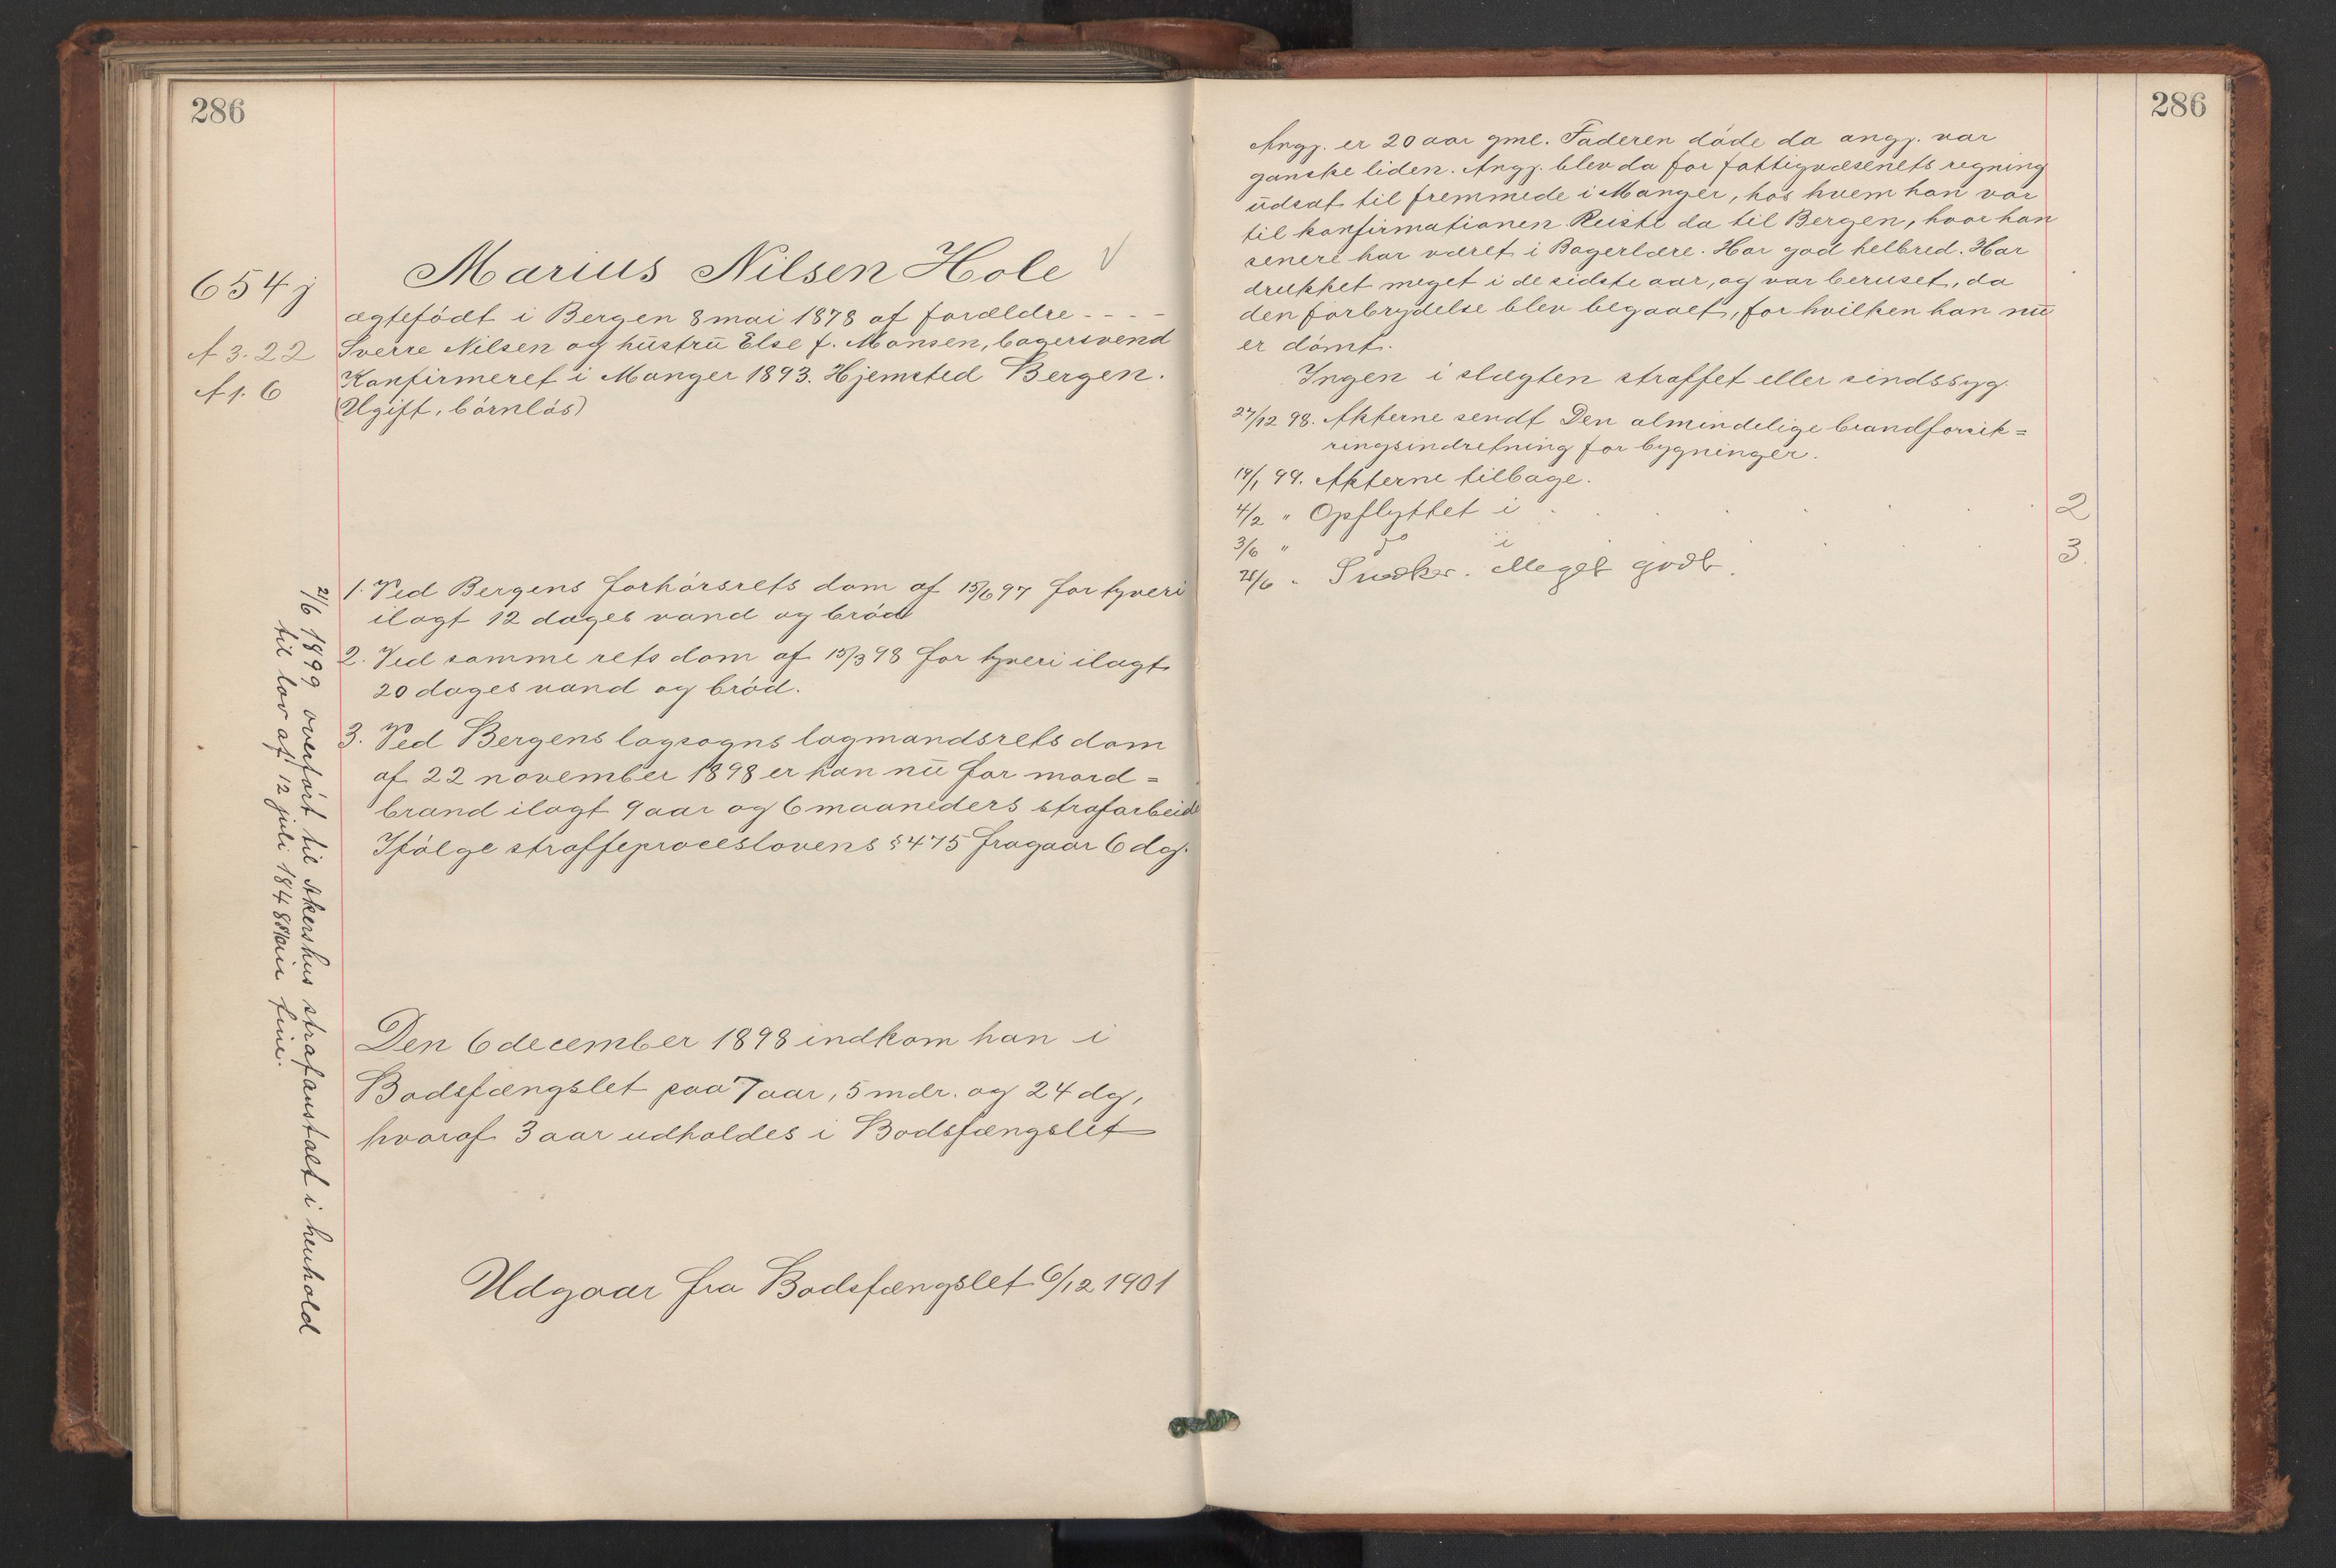 286
654 j
A 3. 22
A 1. 6
Marius Nilsen Hole
ægtefödt i Bergen 8 mai 1878 af forældre - - - -
Sverre Nilsen og hustru Else f. Monsen, bagersvend
Konfirmeret i Manger 1893. Hjemsted Bergen.
(Ugift, börnlös)
1. Ved Bergens forhörsrets dom af 15/6 97 for tyveri
ilagt 12 dages vand og bröd
2. Ved samme rets dom af 15/3 98 for tyveri ilagt
20 dages vand og bröd.
3. Ved Bergens lagsogns lagmandsrets dom
af 22 november 1898 er han nu for mord=
brand ilagt 9 aar og 6 maaneders strafarbeide
Ifölge straffeproceslovens § 475 fragaar 6 dg.
Den 6 december 1898 indkom han i
Bodsfængslet paa 7 aar, 5 mdr. og 24 dg,
hvoraf 3 aar udholdes i Bodsfængslet
Udgaar fra Bodsfængslet 6/12 1901
21/6 1899 overfört til Akershus strafanstalt i henhold
til lov af 12 juli 1848 fine.
286
Angj. er 20 aar gml. Faderen döde da angj. var
ganske liden. Angj. blev da for fattigvæsenets regning
udsat til fremmede i Manger, hos hvem han var
til konfirmationen. Reiste da til Bergen, hvor han
senere har været i Bagerlære. Har god helbred. Har
drukket meget i de sidste aar, og var beruset, da
den forbrydelse blev begaaet, for hvilken han nu
er dömt.
Ingen i slægten straffet eller sindssyg.
27/12 98. Akterne sendt Den almindelige brandforsik=
ringsindretning for bygninger.
19/1 99. Akterne tilbage.
4/2 " Opflyttet i . . . . . . 2
3/6 " do i . . . 3.
21/6 " Snedker. Meget godt.